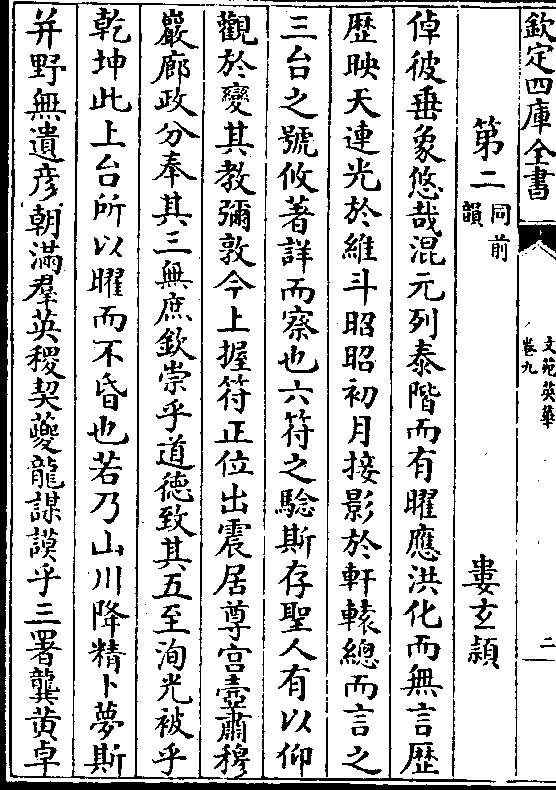 欽定四庫全書
文苑英華
卷九
二
第二同前韻
婁玄穎
倬彼垂象悠哉混元列泰階而有曜應洪化而無言歴
歴映天連光於維斗昭昭初月接影於軒轅總而言之
三台之號攸著詳而察也六符之驗斯存聖人有以仰
觀於變其教彌敦今上握符正位出震居尊宫壼肅穆
巖廊政分奉其三無庶欽崇乎道德致其五至洵光被乎
乾坤此上台所以曜而不昏也若乃山川降精卜夢斯
并野無遺彦朝滿羣英稷契夔龍謀謨乎三署龔黄卓